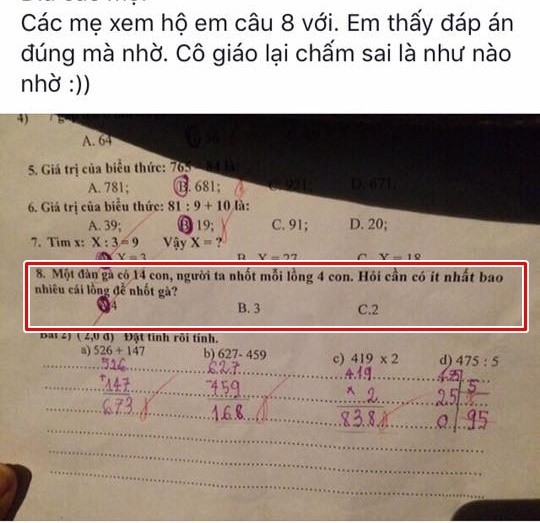 Các mẹ xem hộ em câu 8 với. Em thấy đáp án
đúng mà nhờ. Cô giáo lại chấm sai là như nào
nhờ :))
4)
A. 64
5. Giá trị của biểu thức: 765 84 là:
A. 781; B. 681; C. 921; D. 671.
6. Giá trị của biểu thức: 81 : 9 + 10 là:
A. 39; B 19; C. 91; D. 20;
7. Tìm x: X : 3 = 9 Vậy X = ?
X = 3 B X = 27 C X = 18
8. Một đàn gà có 14 con, người ta nhốt mỗi lồng 4 con. Hỏi cần có ít nhất bao
nhiêu cái lồng để nhốt gà?
4 B. 3 C.2
Bài 2) ( 2,0 đ) Đặt tính rồi tính.
a) 526 + 147 b) 627- 459 c) 419 x 2 d) 475 : 5
526 627 419 475 5
+147 459 x 2 25
673 168 838 0 95